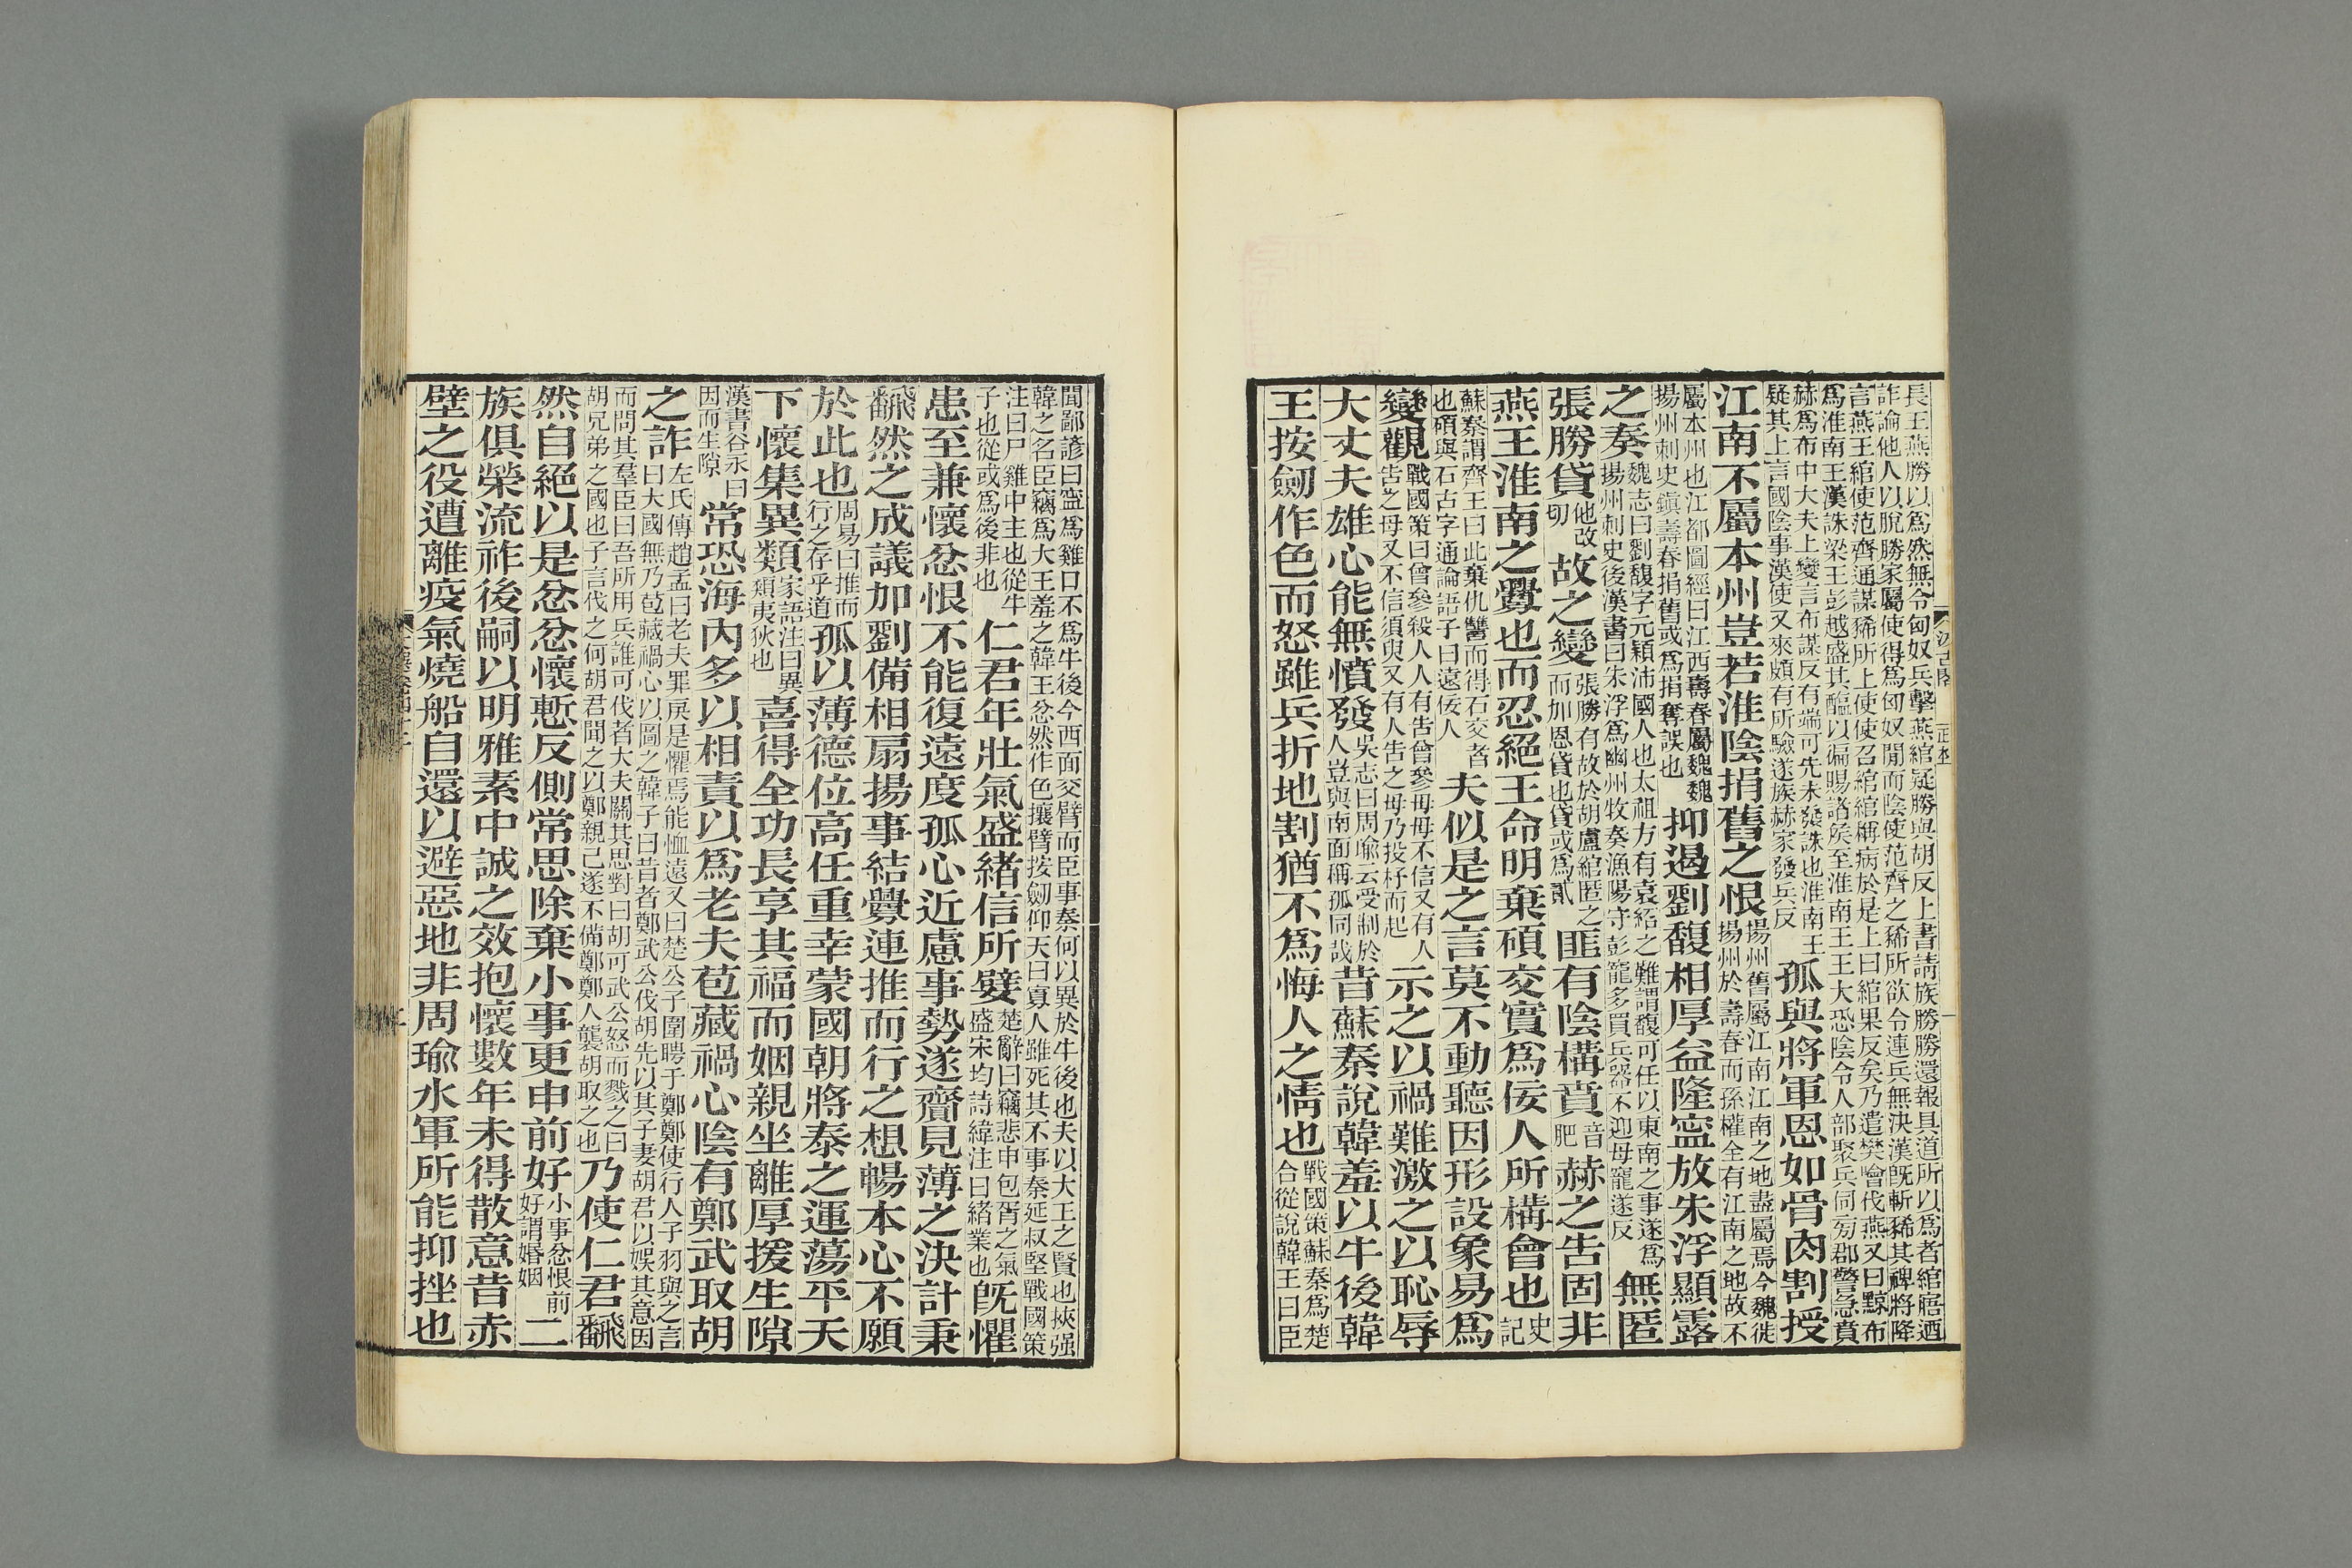 長王燕勝以爲然無令匈奴兵擊燕綰疑勝與胡反上書請族勝勝還報具道所以爲者綰寤廼
詐論他人以脫勝家屬使得爲匈奴閒而陰使范齊之豨所欲令連兵無決漢旣斬豨其裨將降
言燕王綰使范齊通謀豨所上使使召綰綰稱病於是上曰綰果反矣乃遣樊噲伐燕又曰黥布
爲淮南王漢誅梁王彭越盛其醢以徧賜諸侯至淮南王王大恐陰令人部聚兵伺旁郡警急賁
赫爲布中大夫上變言布謀反有端可先未發誅也淮南王
疑其上言國陰事漢使又來頗有所驗遂族赫家發兵反
孤與將軍恩如骨肉割授
江南不屬本州豈若淮陰捐舊之恨
揚州舊屬江南江南之地盡屬焉今魏徙
揚州於壽春而孫權全有江南之地故不
屬本州也江都圖經曰江西壽春屬魏魏
揚州刺史鎭壽春捐舊或爲捐奪誤也
抑遏劉馥相厚益隆寍放朱浮顯露
之奏
魏志曰劉馥字元穎沛國人也太祖方有袁紹之難謂馥可任以東南之事遂爲
揚州刺史後漢書曰朱浮爲幽州牧奏漁陽守彭寵多買兵器不迎母寵遂反
無匿
張勝貸
他改
切
故之變
張勝有故於胡盧綰匿之
而加恩貸也貸或爲貳
匪有陰構賁
音
肥
赫之吿固非
燕王淮南之釁也而忍絕王命明棄碩交實爲佞人所構會也
史
記
蘇秦謂齊王曰此棄仇讐而得石交者
也碩與石古字通論語子曰遠佞人
夫似是之言莫不動聽因形設象易爲
變觀
戰國策曰曾參殺人人有吿曾參母母不信又有人
吿之母又不信須臾又有人吿之母乃投杼而起
示之以禍難激之以恥辱
大丈夫雄心能無憤發
吳志曰周瑜云受制於
人豈與南面稱孤同哉
昔蘇秦說韓羞以牛後韓
王按劒作色而怒雖兵折地割猶不爲悔人之情也
戰國策蘇秦爲楚
合從說韓王曰臣
聞鄙諺曰寍爲雞口不爲牛後今西面交臂而臣事秦何以異於牛後也夫以大王之賢也挾强
韓之名臣竊爲大王羞之韓王忿然作色攘臂按劒仰天曰寡人雖死其不事秦延叔堅戰國策
注曰尸雞中主也從牛
子也從或爲後非也
仁君年壯氣盛緒信所嬖
楚辭曰竊悲申包胥之氣
盛宋均詩緯注曰緒業也
旣懼
患至兼懷忿恨不能復遠度孤心近慮事勢遂齎見薄之決計秉
翻然之成議加劉備相扇揚事結釁連推而行之想暢本心不願
於此也
周易曰推而
行之存乎道
孤以薄德位高任重幸蒙國朝將泰之運蕩平天
下懷集異類
家語注曰異
類夷狄也
喜得全功長享其福而姻親坐離厚援生隙
漢書谷永曰
因而生隙
常恐海內多以相責以爲老夫苞藏禍心陰有鄭武取胡
之詐
左氏傳趙孟曰老夫罪戾是懼焉能恤遠又曰楚公子圍聘于鄭鄭使行人子羽與之言
曰大國無乃苞藏禍心以圖之韓子曰昔者鄭武公伐胡先以其子妻胡君以娛其意因
而問其羣臣曰吾所用兵誰可伐者大夫關其思對曰胡可武公怒而戮之曰
胡兄弟之國也子言伐之何胡君聞之以鄭親己遂不備鄭鄭人襲胡取之也
乃使仁君翻
然自絕以是忿忿懷慙反側常思除棄小事更申前好
小事忿恨前
好謂婚姻
二
族俱榮流祚後嗣以明雅素中誠之效抱懷數年未得散意昔赤
壁之役遭離疫氣燒船自還以避惡地非周瑜水軍所能抑挫也